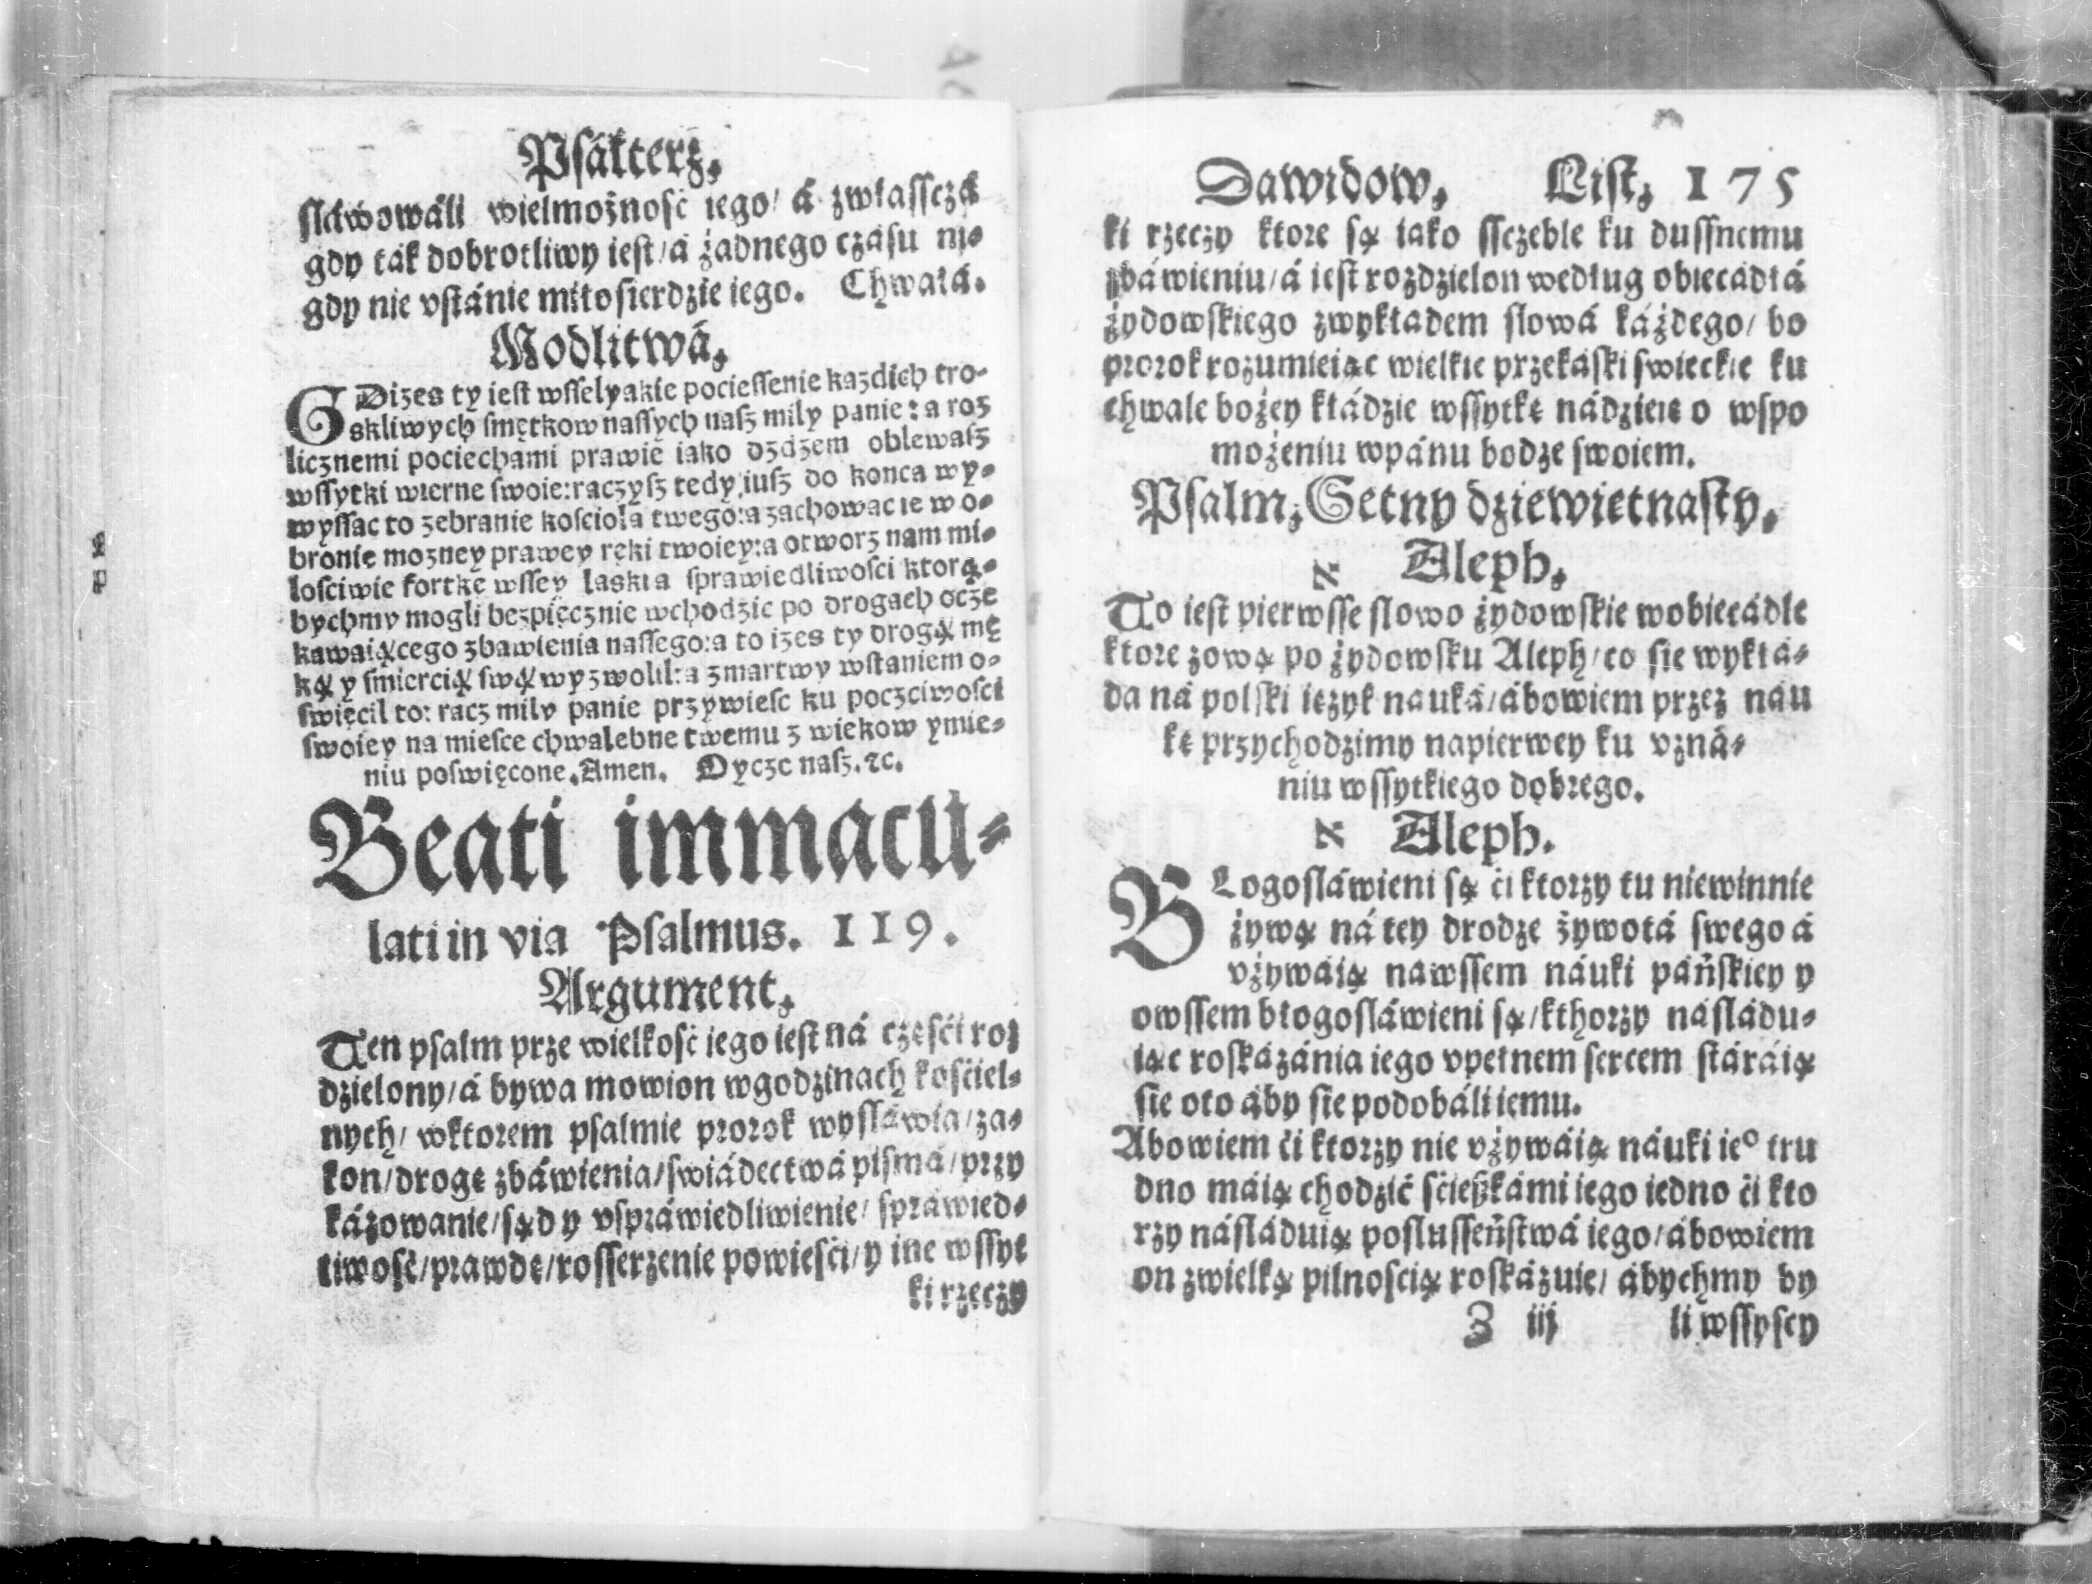 Psałterz.
sláwowáli wielmożność iego/ á zwłassczá
gdy ták dobrotliwy iest/á żadnego czásu ni-
gdy nie vstánie miłosierdzie iego. Chwałá.
Modlitwá.
GDizes ty iest wsselyakie pociessenie kazdich tro-
skliwych smętkow nassych nasz mily panie: a roz
licznemi pociechami prawie iako dżdżem oblewasz
wssytki wierne swoie: raczysz tedy iusz do konca wy-
wyssac to zebranie kosciola twego: a zachowac ie w o-
bronie mozney prawey ręki twoiey: a otworz nam mi-
losciwie fortkę wssey laski a sprawiedliwosci ktorą-
bychmy mogli bezpięcznie wchodzic po drogach ocze
kawaiącego zbawienia nassego: a to izes ty drogą mę
ką y smiercią swą wyzwolil: a zmartwy wstaniem o-
święcil to: racz mily panie przywiesc ku poczciwosci
swoiey na miesce chwalebne twemu z wiekow ymie-
niu poswięcone. Amen. Oycze nasz. ⁊c.
Beati immacu-
lati in via Psalmus. 119.
Argument.
Ten psalm prze wielkość iego iest ná częsći roz
dzielony/á bywa mowion wgodzinach kośćiel-
nych/ wktorem psalmie prorok wysłáwia/za-
kon/drogę zbáwienia/swiádectwá pismá/przy
kázowanie/sądy vspráwiedliwienie/ spráwied-
liwość/prawdę/rosserzenie powieści/y ine wssyt
ki rzeczy
Dawidow. List. 175
ki rzeczy ktore są iako ssczeble ku dussnemu
zbáwieniu/á iest rozdzielon według obiecádłá
żydowskiego zwykładem słowá káżdego/ bo
prorok rozumieiąc wielkie przekáski swieckie ku
chwale bożey kłádzie wssytkę nádzieię o wspo
możeniu wpánu bodze swoiem.
Psalm. Setny dziewiętnasty.
א Aleph.
To iest pierwsse słowo żydowskie wobiecádle
ktore zową po żydowsku Aleph/co się wykła-
da ná polski ięzyk nauká/ábowiem przez náu
kę przychodzimy napierwey ku vzná-
niu wssytkiego dobrego.
א Aleph.
BLogosláwieni są ći ktorzy tu niewinnie
żywą ná tey drodze żywotá swego á
vżywáią nawssem náuki páńskiey y
owssem błogosláwieni są/kthorzy násládu-
iąc roskazánia iego vpełnem sercem stáráią
się oto áby się podobáli iemu.
Abowiem ći ktorzy nie vżywáią náuki ieº tru
dno máią chodzić ścieżkámi iego iedno ći kto
rzy násláduią poslusseństwá iego/ábowiem
on zwielką pilnością roskázuie/ ábychmy by
Z iij li wssyscy